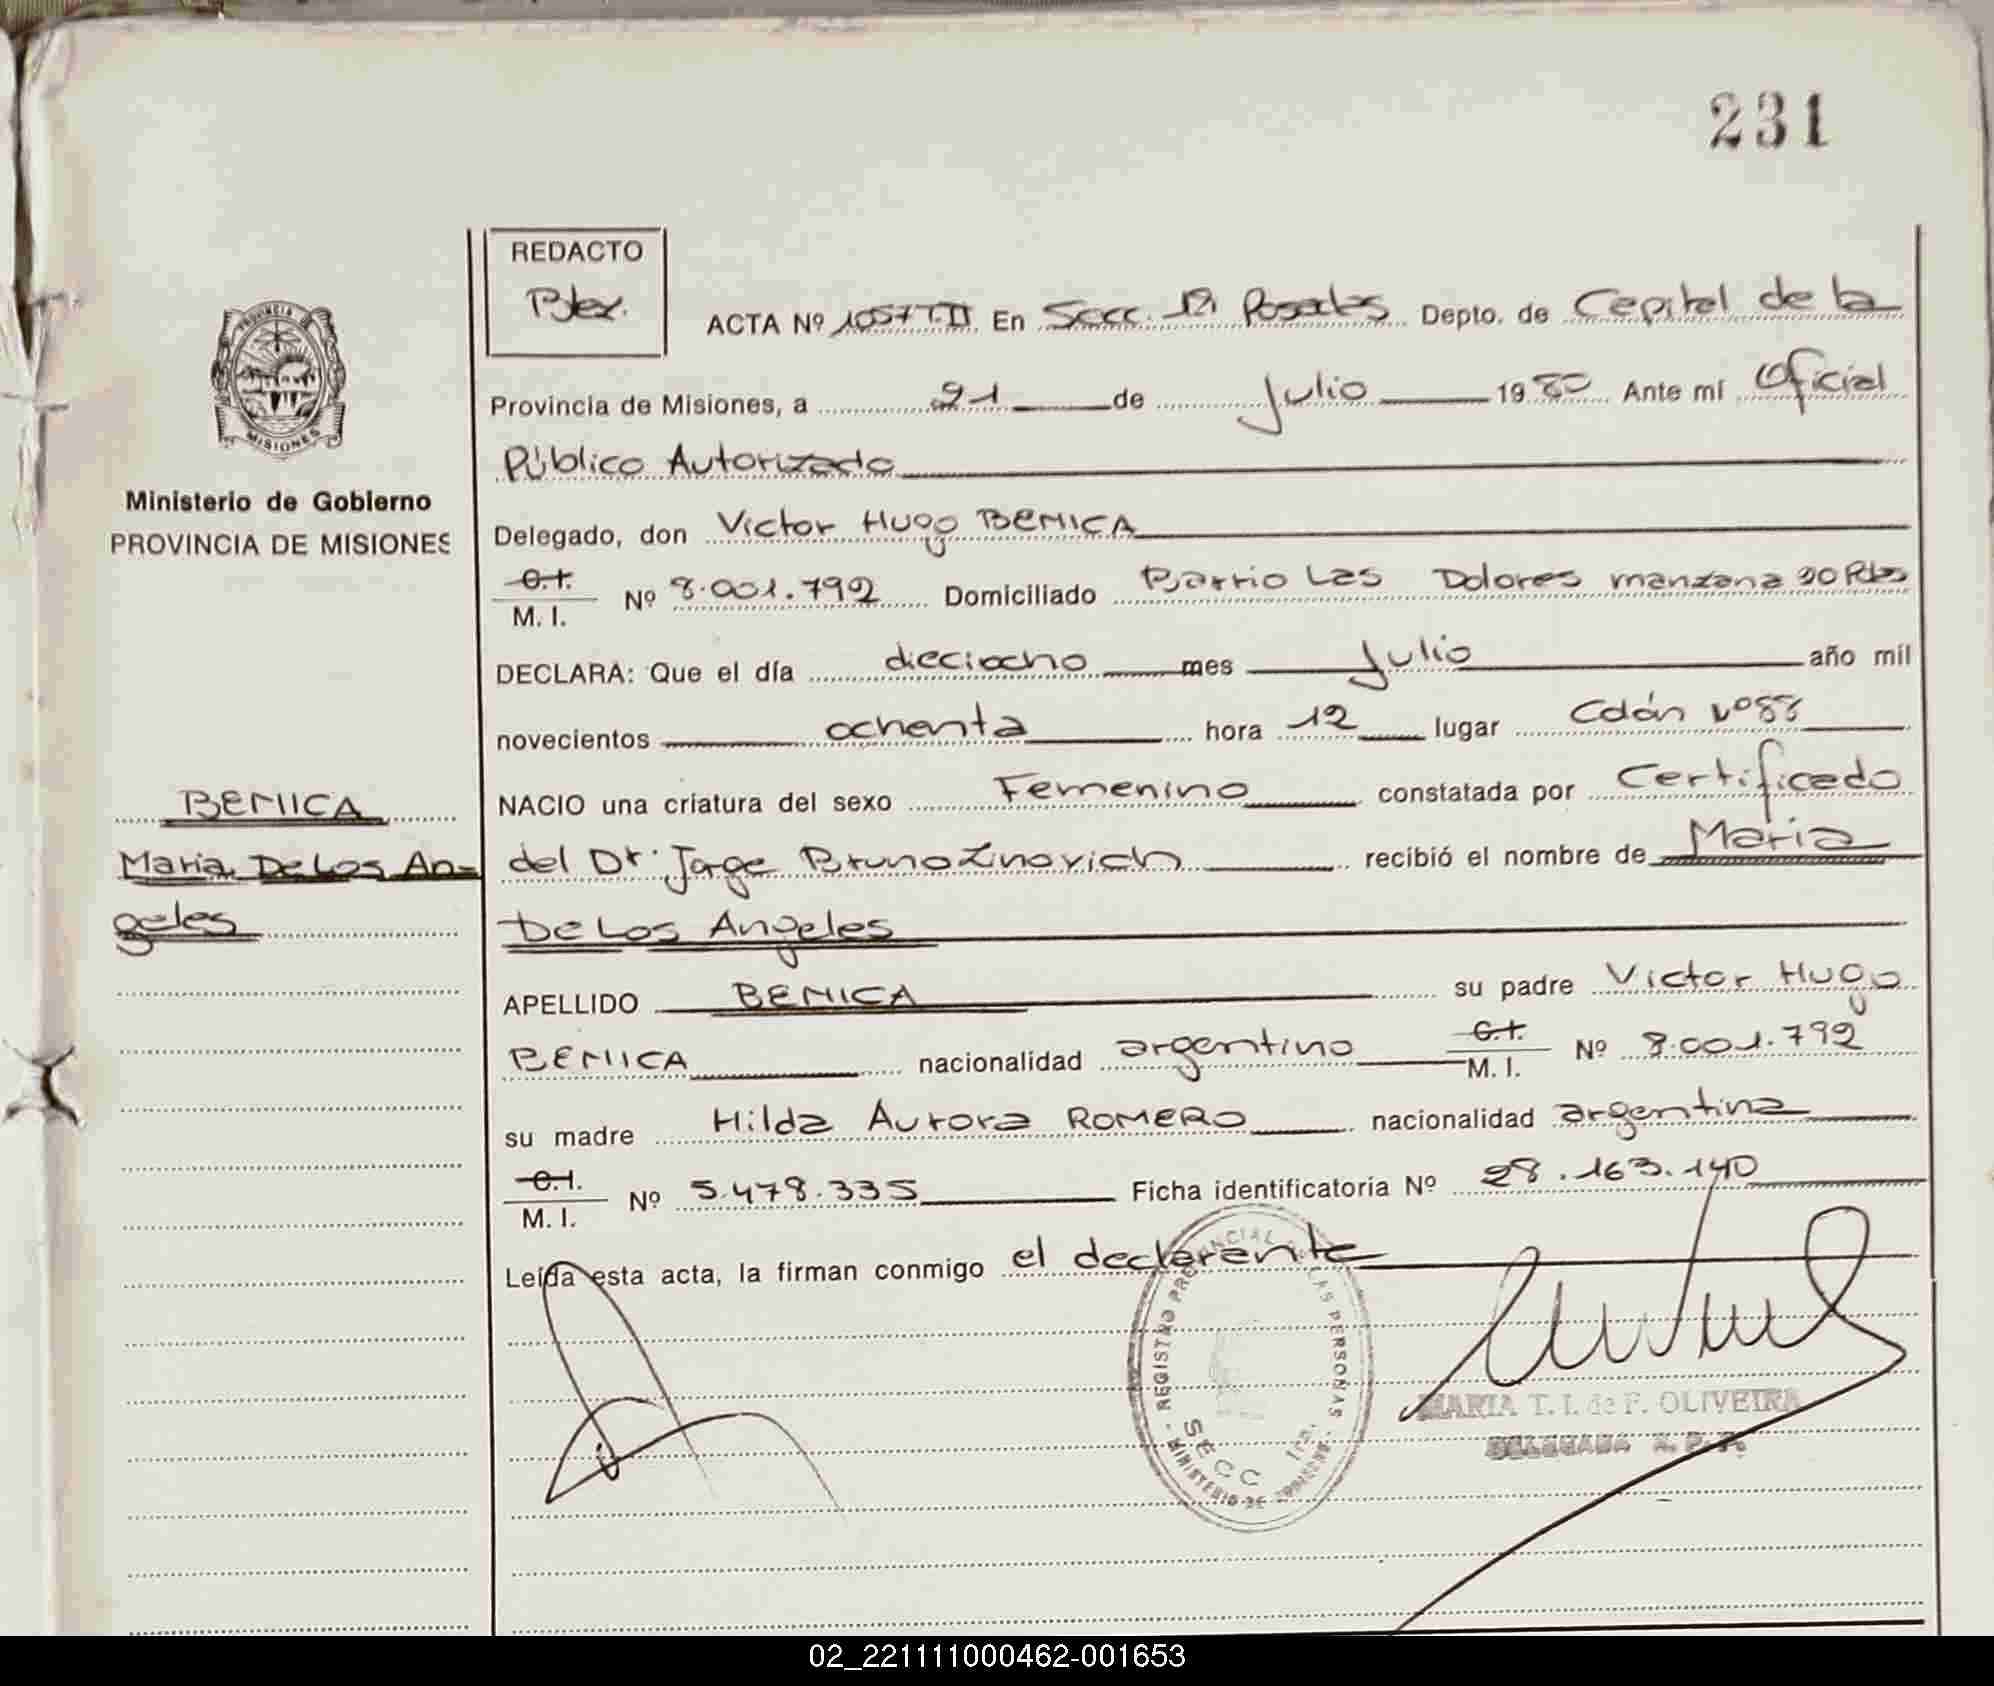 231
REDACTO
ACTA Nº 1057 T.II En Secc. 1ª Posadas Depto. de Capital de la
Provincia de Misiones, a 21 de Julio 1980 Ante mí Oficial
Público Autorizado
MISIONES
Ministerio de Gobierno
PROVINCIA DE MISIONES
Delegado, don Victor Hugo BENICA
C.I.
M. I. Nº 8.001.792 Domiciliado Barrio Las Dolores manzana 90 Pdas
DECLARA: Que el día dieciocho mes Julio año mil
novecientos ochenta hora 12 lugar Colón Nº 88
BENICA
Maria De Los An-
geles
NACIO una criatura del sexo Femenino constatada por Certificado
del Dr. Jorge Bruno Zinovich recibió el nombre de Maria
De Los Angeles
APELLIDO BENICA su padre Victor Hugo
BENICA nacionalidad argentino C.I. M. I. Nº 8.001.792
su madre Hilda Aurora ROMERO nacionalidad argentina
C.I.
M. I. Nº 5.478.335 Ficha identificatoria Nº 28.163.140
Leída esta acta, la firman conmigo el declarante
REGISTRO PROVINCIAL DE LAS PERSONAS
SECC 1ra.
MINISTERIO DE GOBIERNO
MARIA T. I. de F. OLIVEIRA
DELEGADA R. P. P.
02_221111000462-001653